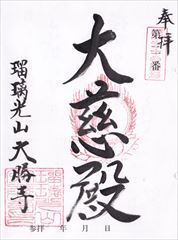 奉拝
第二十番
大慈殿
瑠璃光山大勝寺
参拝 年 月 日